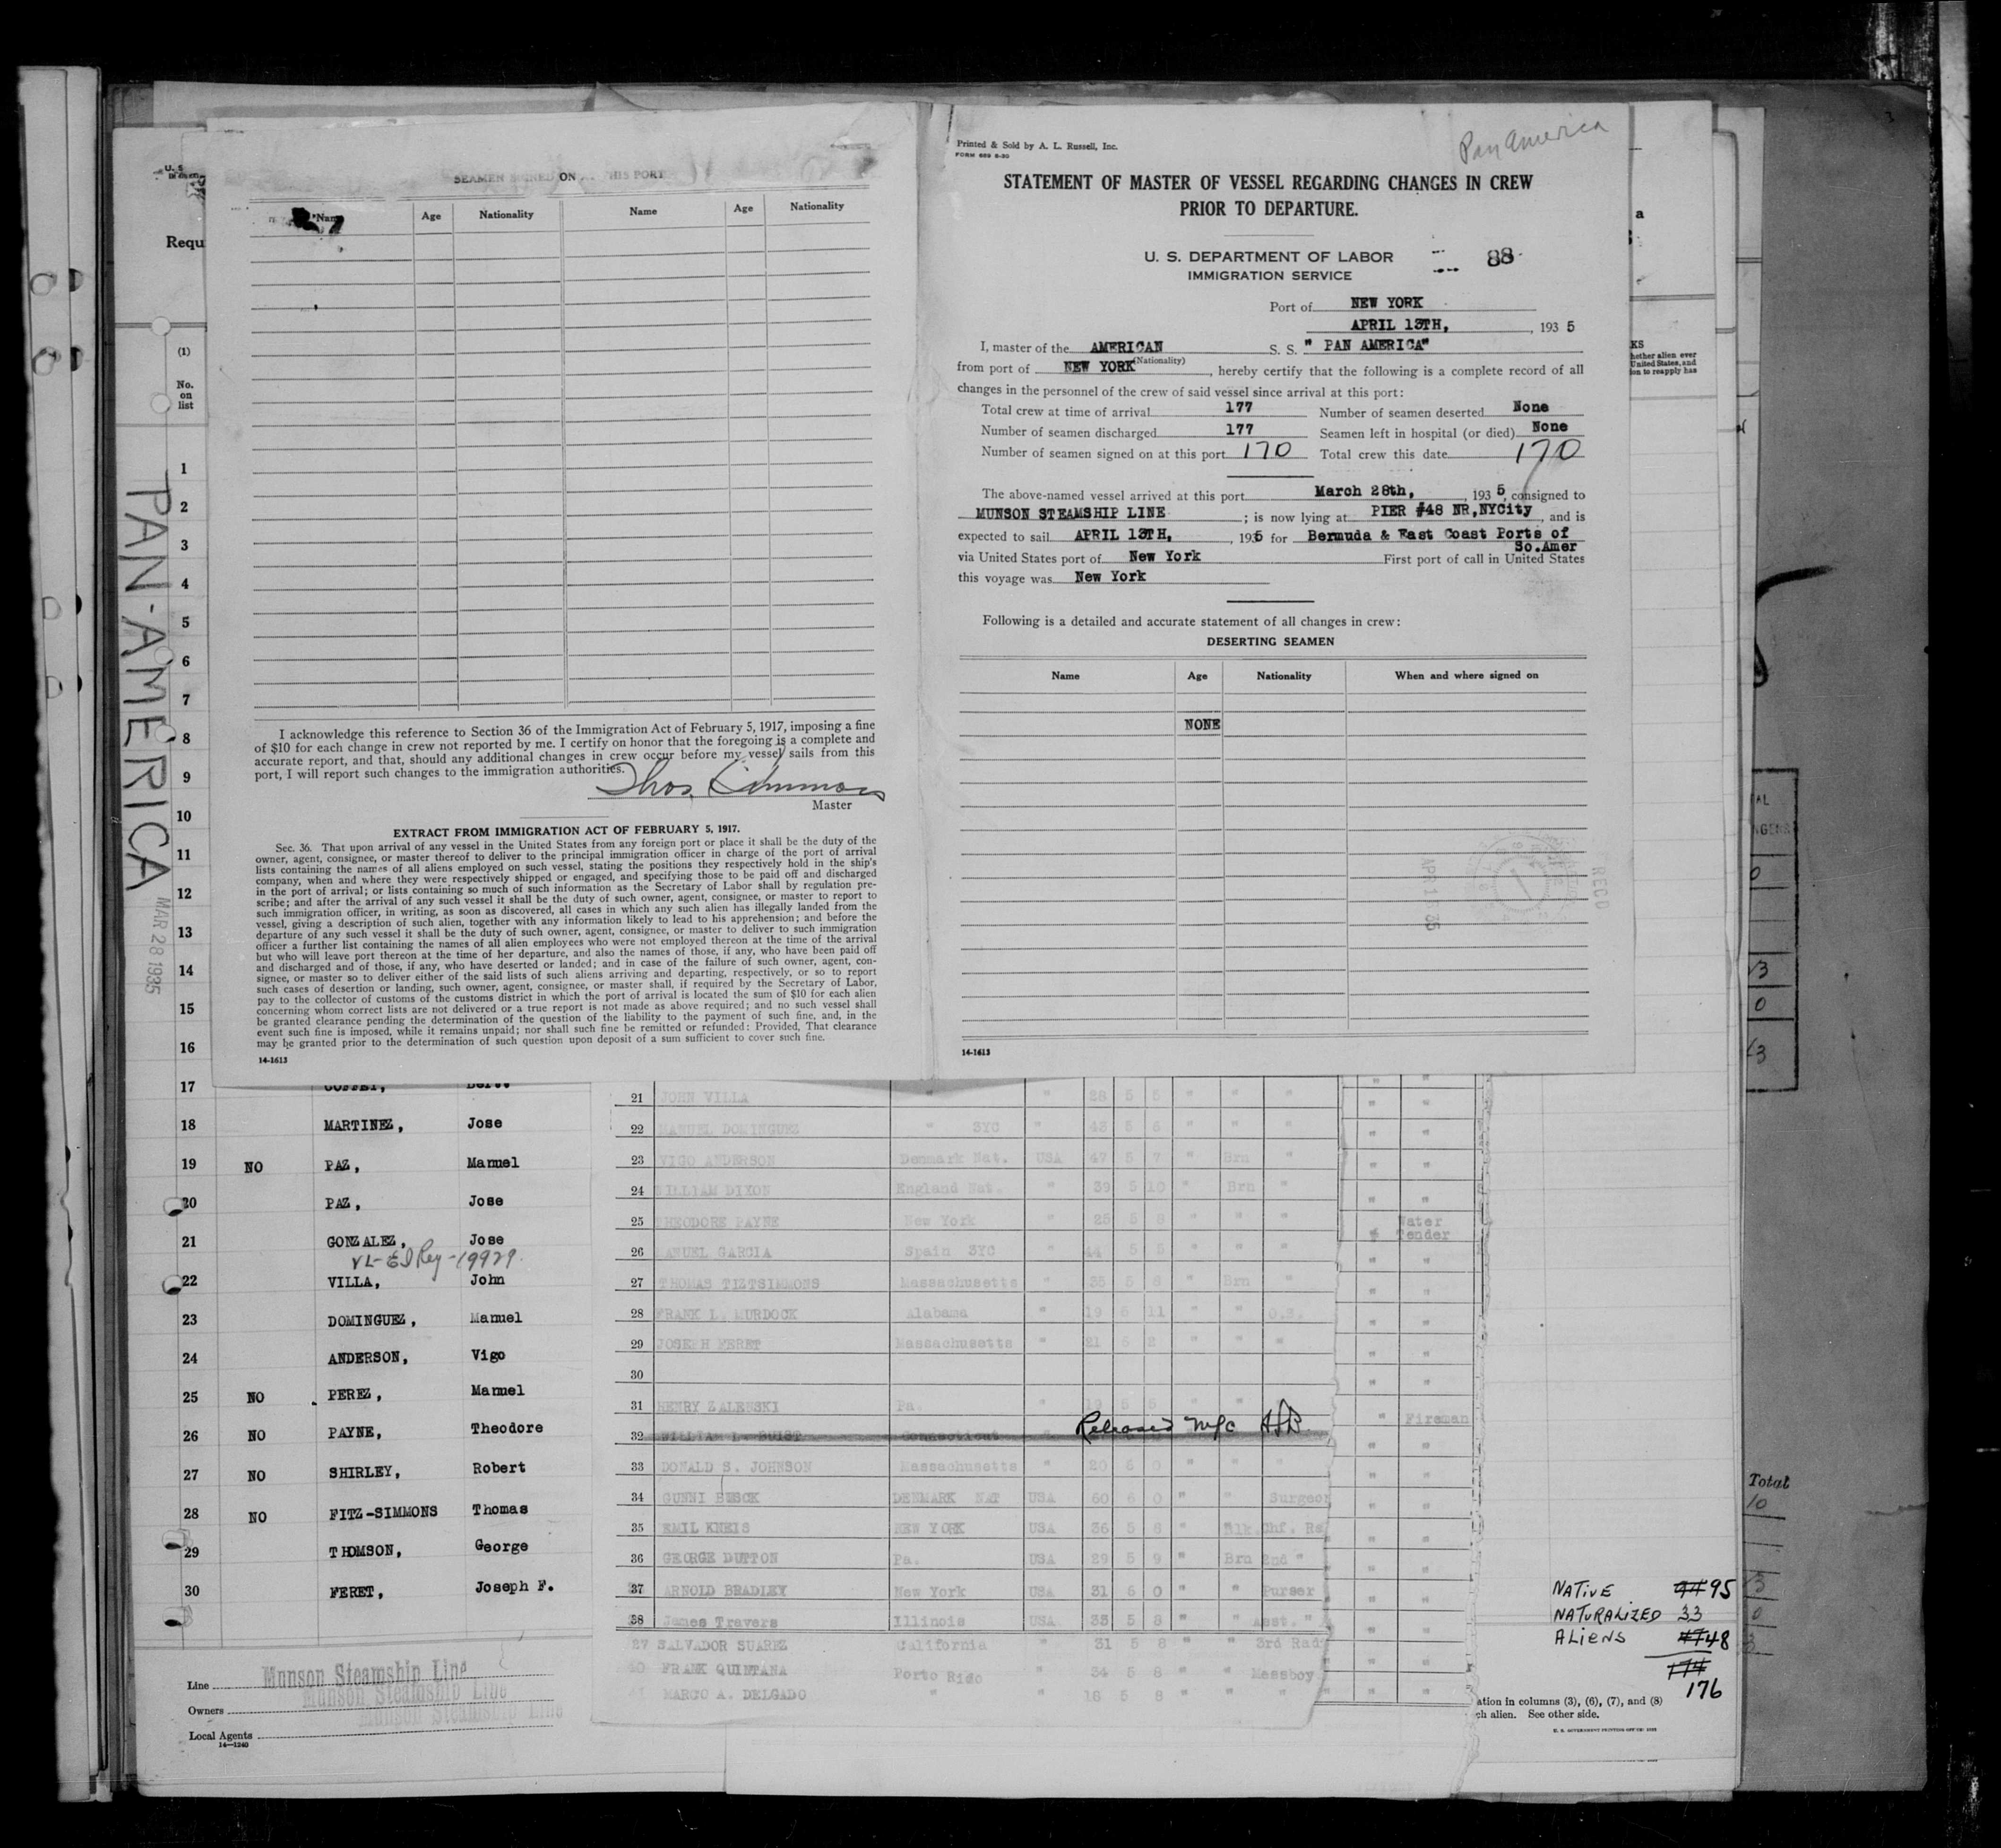 SEAMEN SIGNED ON THIS PORT
Name Age Nationality Name Age Nationality
I acknowledge this reference to Section 36 of the Immigration Act of February 5, 1917, imposing a fine
of $10 for each change in crew not reported by me. I certify on honor that the foregoing is a complete and
accurate report, and that, should any additional changes in crew occur before my vessel sails from this
port, I will report such changes to the immigration authorities.
Thos. Simmons
Master
EXTRACT FROM IMMIGRATION ACT OF FEBRUARY 5, 1917.
Sec. 36. That upon arrival of any vessel in the United States from any foreign port or place it shall be the duty of the
owner, agent, consignee, or master thereof to deliver to the principal immigration officer in charge of the port of arrival
lists containing the names of all aliens employed on such vessel, stating the positions they respectively hold in the ship's
company, when and where they were respectively shipped or engaged, and specifying those to be paid off and discharged
in the port of arrival; or lists containing so much of such information as the Secretary of Labor shall by regulation pre-
scribe; and after the arrival of any such vessel it shall be the duty of such owner, agent, consignee, or master to report to
such immigration officer, in writing, as soon as discovered, all cases in which any such alien has illegally landed from the
vessel, giving a description of such alien, together with any information likely to lead to his apprehension; and before the
departure of any such vessel it shall be the duty of such owner, agent, consignee, or master to deliver to such immigration
officer a further list containing the names of all alien employees who were not employed thereon at the time of the arrival
but who will leave port thereon at the time of her departure, and also the names of those, if any, who have been paid off
and discharged and of those, if any, who have deserted or landed; and in case of the failure of such owner, agent, con-
signee, or master so to deliver either of the said lists of such aliens arriving and departing, respectively, or so to report
such cases of desertion or landing, such owner, agent, consignee, or master shall, if required by the Secretary of Labor,
pay to the collector of customs of the customs district in which the port of arrival is located the sum of $10 for each alien
concerning whom correct lists are not delivered or a true report is not made as above required; and no such vessel shall
be granted clearance pending the determination of the question of the liability to the payment of such fine, and, in the
event such fine is imposed, while it remains unpaid; nor shall such fine be remitted or refunded: Provided, That clearance
may be granted prior to the determination of such question upon deposit of a sum sufficient to cover such fine.
14-1613
Printed & Sold by A. L. Russell, Inc.
FORM 689 8-30
Pan America
STATEMENT OF MASTER OF VESSEL REGARDING CHANGES IN CREW
PRIOR TO DEPARTURE.
U. S. DEPARTMENT OF LABOR
IMMIGRATION SERVICE
88
Port of NEW YORK
APRIL 13TH, , 193 5
I, master of the AMERICAN S. S. " PAN AMERICA"
(Nationality)
from port of NEW YORK , hereby certify that the following is a complete record of all
changes in the personnel of the crew of said vessel since arrival at this port:
Total crew at time of arrival 177 Number of seamen deserted None
Number of seamen discharged 177 Seamen left in hospital (or died) None
Number of seamen signed on at this port 170 Total crew this date 170
The above-named vessel arrived at this port March 28th, , 193 5, consigned to
MUNSON STEAMSHIP LINE ; is now lying at PIER #48 NR,NYCity , and is
expected to sail APRIL 13TH, , 1935 for Bermuda & East Coast Ports of
So.Amer
via United States port of New York First port of call in United States
this voyage was New York
Following is a detailed and accurate statement of all changes in crew:
DESERTING SEAMEN
Name Age Nationality When and where signed on
NONE
REC'D
APR 13 35
14-1613
U. S.
Requ
(1)
No.
on
list
PAN-AMERICA
MAR 28 1935
1
2
3
4
5
6
7
8
9
10
11
12
13
14
15
16
17
18 MARTINEZ, Jose
19 NO PAZ, Manuel
20 PAZ, Jose
21 GONZALEZ, Jose
VL-EI Rey-19929
22 VILLA, John
23 DOMINGUEZ, Manuel
24 ANDERSON, Vigo
25 NO PEREZ, Manuel
26 NO PAYNE, Theodore
27 NO SHIRLEY, Robert
28 NO FITZ-SIMMONS Thomas
29 THOMSON, George
30 FERET, Joseph F.
Line Munson Steamship Line
Owners Munson Steamship Line
Local Agents Munson Steamship Line
14-1240
21 JOHN VILLA " " 28 5 5 " " "
22 MANUEL DOMINGUEZ " 3YC " 43 5 6 " " "
23 VIGO ANDERSON Denmark Nat. USA 47 5 7 " Brn "
24 WILLIAM DIXON England Nat. " 39 5 10 " Brn "
25 THEODORE PAYNE New York " 25 5 8 " " "
Water
Tender
26 MANUEL GARCIA Spain 3YC " 44 5 5 " " "
27 THOMAS TIZTSIMMONS Massachusetts " 35 5 8 " Brn "
28 FRANK L. MURDOCK Alabama " 19 5 11 " " O.S.
29 JOSEPH FERET Massachusetts " 21 5 2 " " "
30
31 HENRY ZALENSKI Pa. " 19 5 5 " " " Fireman
32 WILLIAM L. BUIST Connecticut Released
33 DONALD S. JOHNSON Massachusetts " 20 6 0 " " "
34 GUNNI BUSCK DENMARK NAT USA 60 6 0 " " Surgeon
35 EMIL KNEIS NEW YORK USA 36 5 8 " Blk Chf. Ra
36 GEORGE DUTTON Pa. USA 29 5 9 " Brn 2nd "
37 ARNOLD BRADLEY New York USA 31 6 0 " " Purser
38 James Travers Illinois USA 35 5 8 " " Asst. "
SALVADOR SUAREZ California " 31 5 8 " " 3rd Rad
40 FRANK QUINTANA Porto Rico " 34 5 8 " " Messboy
41 MARCO A. DELGADO " " 18 5 8 " "
KS
hether alien ever
United States, and
ion to reapply has
NATIVE 95
NATURALIZED 33
ALIENS 48
174
176
ation in columns (3), (6), (7), and (8)
ch alien. See other side.
Total
10